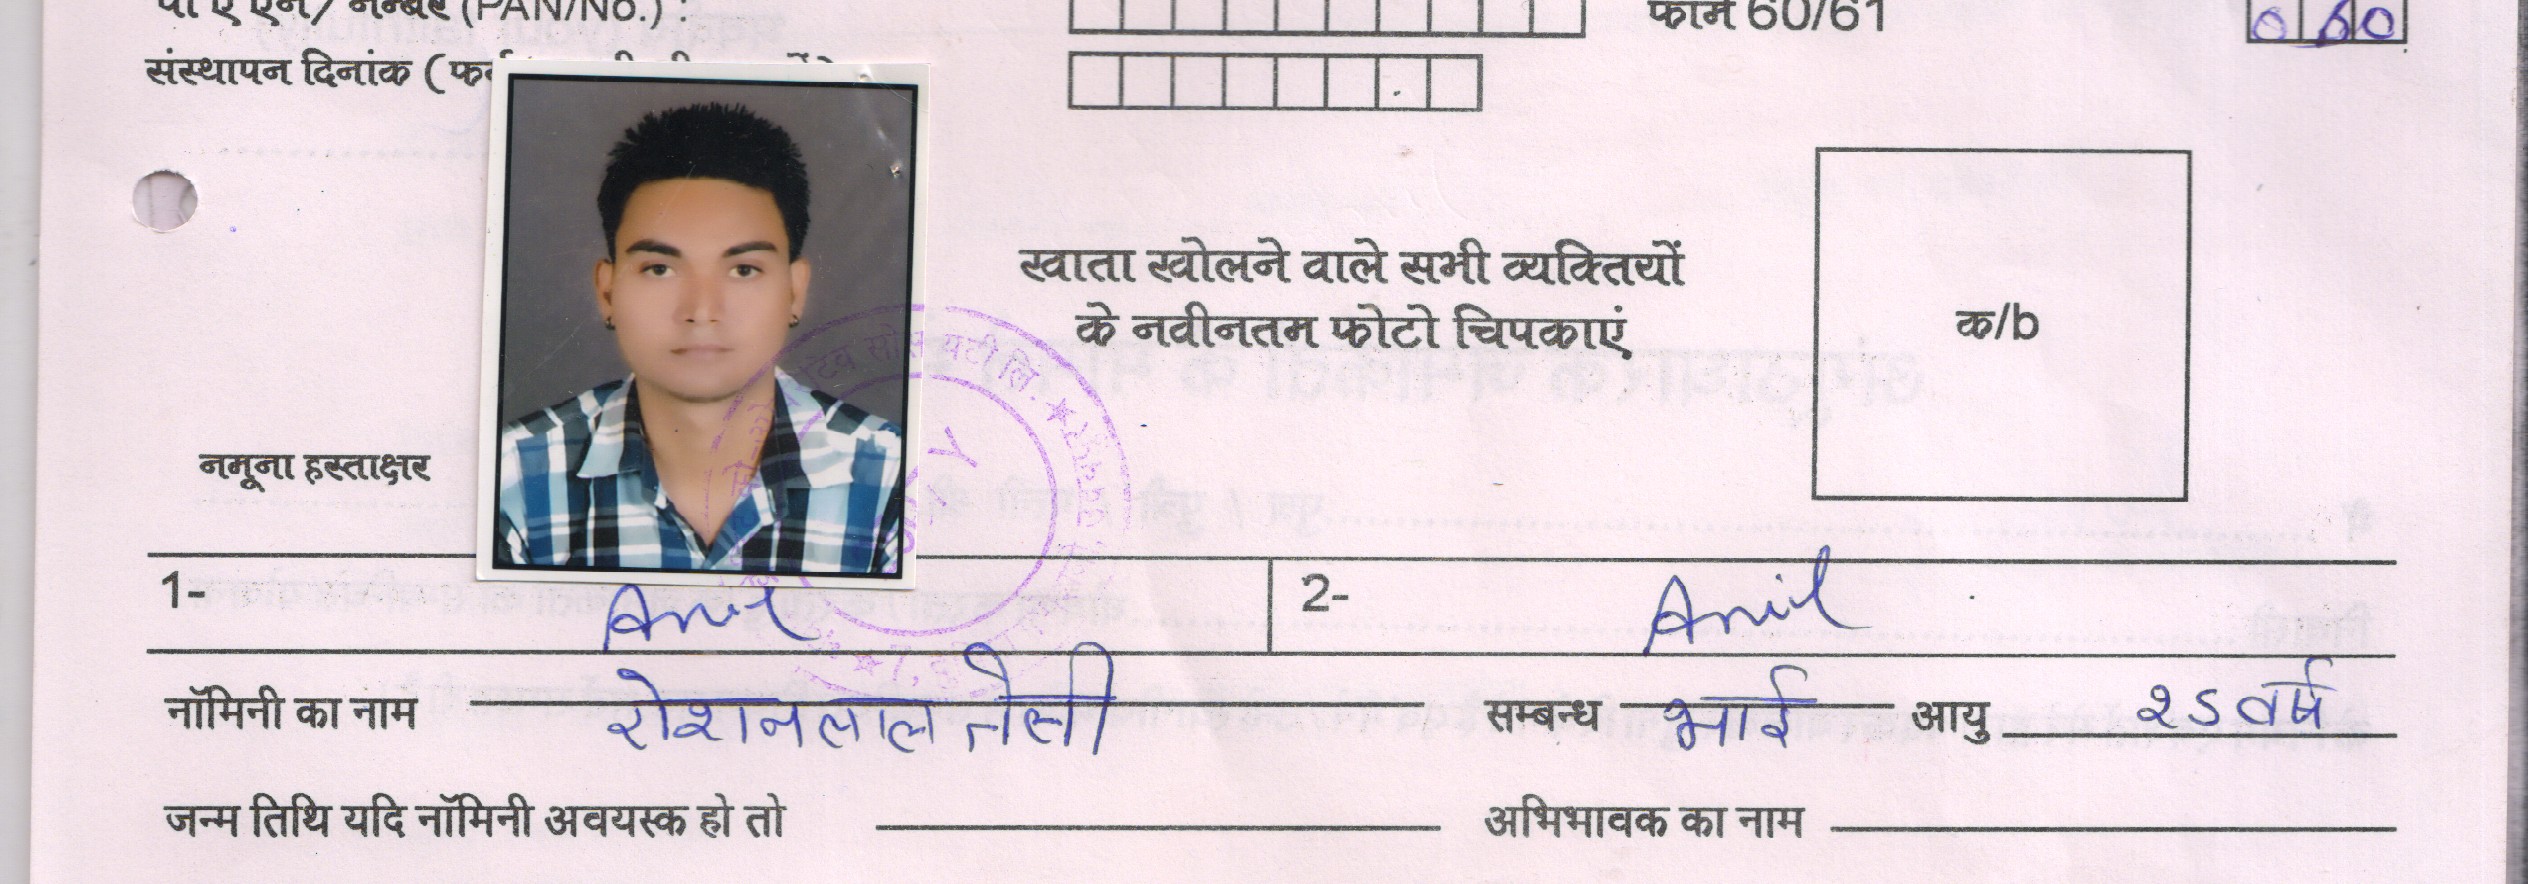 पी ए एन/ नम्बर (PAN/No.) : फार्म 60/61 060
संस्थापन दिनांक (फर्म
खाता खोलने वाले सभी व्यक्तियों
के नवीनतम फोटो चिपकाएं
क/b
नमूना हस्ताक्षर
1- Anil 2- Anil
नॉमिनी का नाम रोशनलाल तेली सम्बन्ध भाई आयु २५ वर्ष
जन्म तिथि यदि नॉमिनी अवयस्क हो तो अभिभावक का नाम